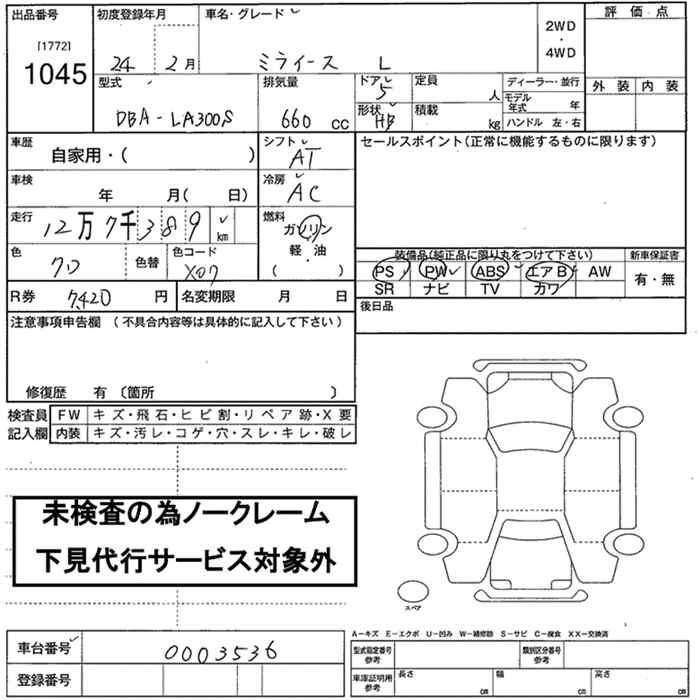 出品番号 初度登録年月 車名・グレード 評価点
[1772]
1045 24 2月 ミライース L 2WD・4WD
型式 排気量 ドア 定員 ディーラー・並行 外装 内装
5 人 モデル年式 年
DBA-LA300S 660 cc 形状 積載 ハンドル 左・右
HB kg
車歴 シフト セールスポイント(正常に機能するものに限ります)
自家用・( ) AT
車検 冷房
年 月( 日) AC
走行 燃料
12万7千389 km ガソリン
軽・油
( )
色 色替 色コード 装備品(純品に限り丸をつけて下さい) 新車保証書
クロ X07 PS PW ABS エアB AW 有・無
SR ナビ TV カワ
R券 7,420 円 名変期限 月 日 後日品
注意事項申告欄 (不具合内容等は具体的に記入して下さい)
修復歴 有 〔箇所 〕
検査員 FW キズ・飛石・ヒビ割・リペア跡・X要
記入欄 内装 キズ・汚レ・コゲ・穴・スレ・キレ・破レ
未検査の為ノークレーム
下見代行サービス対象外
スペア
A-キズ E-エクボ U-凹み W-補修跡 S-サビ C-腐食 XX-交換済
車台番号 0003536 型式指定番号参考 類別区分番号参考
登録番号 車庫証明用参考 長さ cm 幅 cm 高さ cm